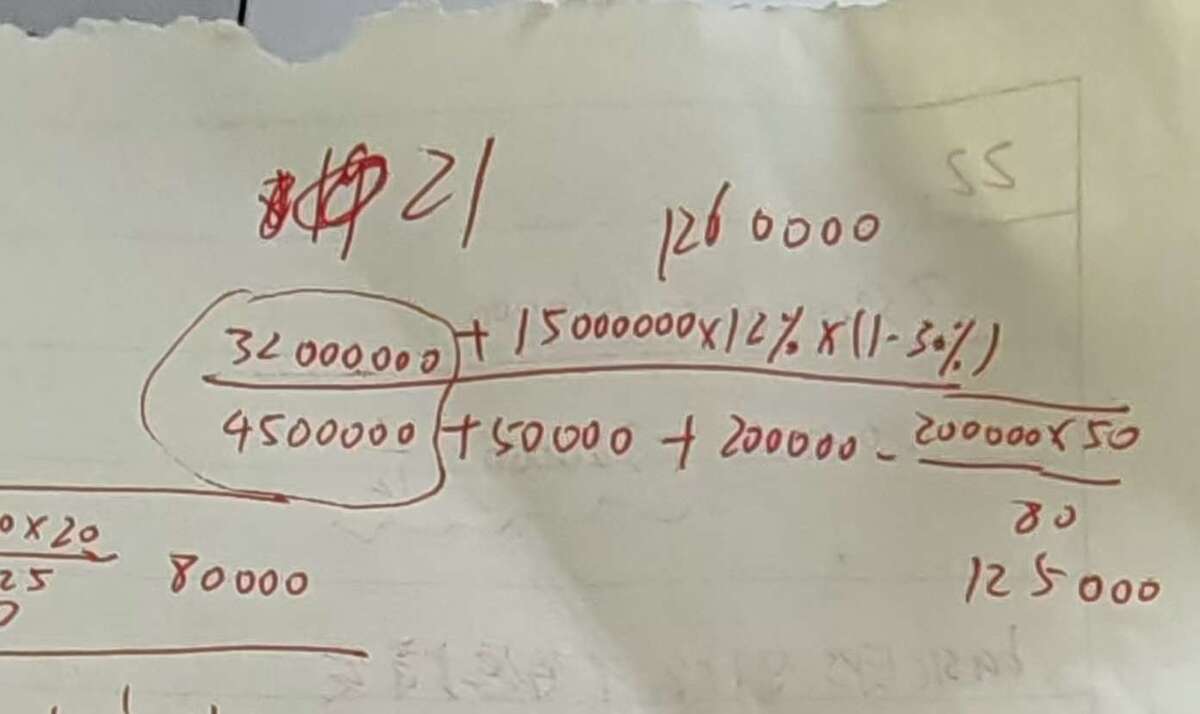 21
1260000
32000000 + 15000000×12%×(1-30%)
4500000 + 50000 + 200000 - 200000×50
80
125000
0×20
25
80000